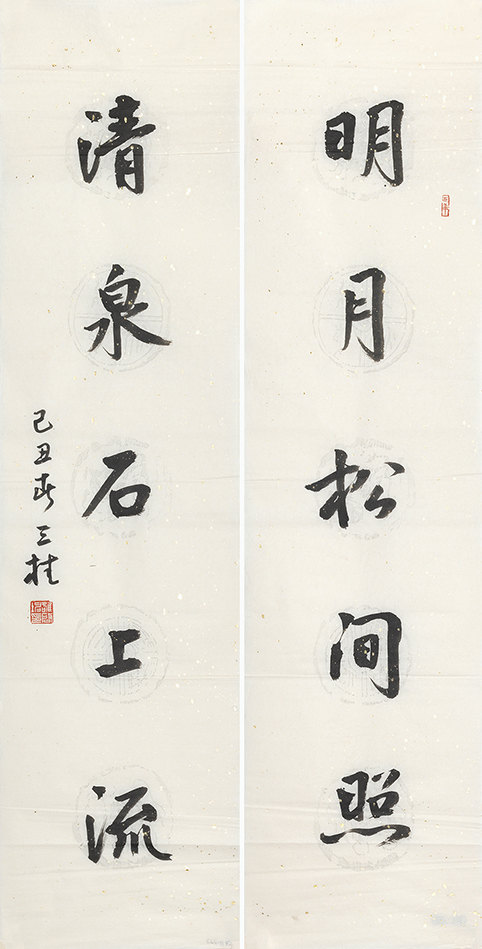 明月松间照
清泉石上流
己丑春 三桂